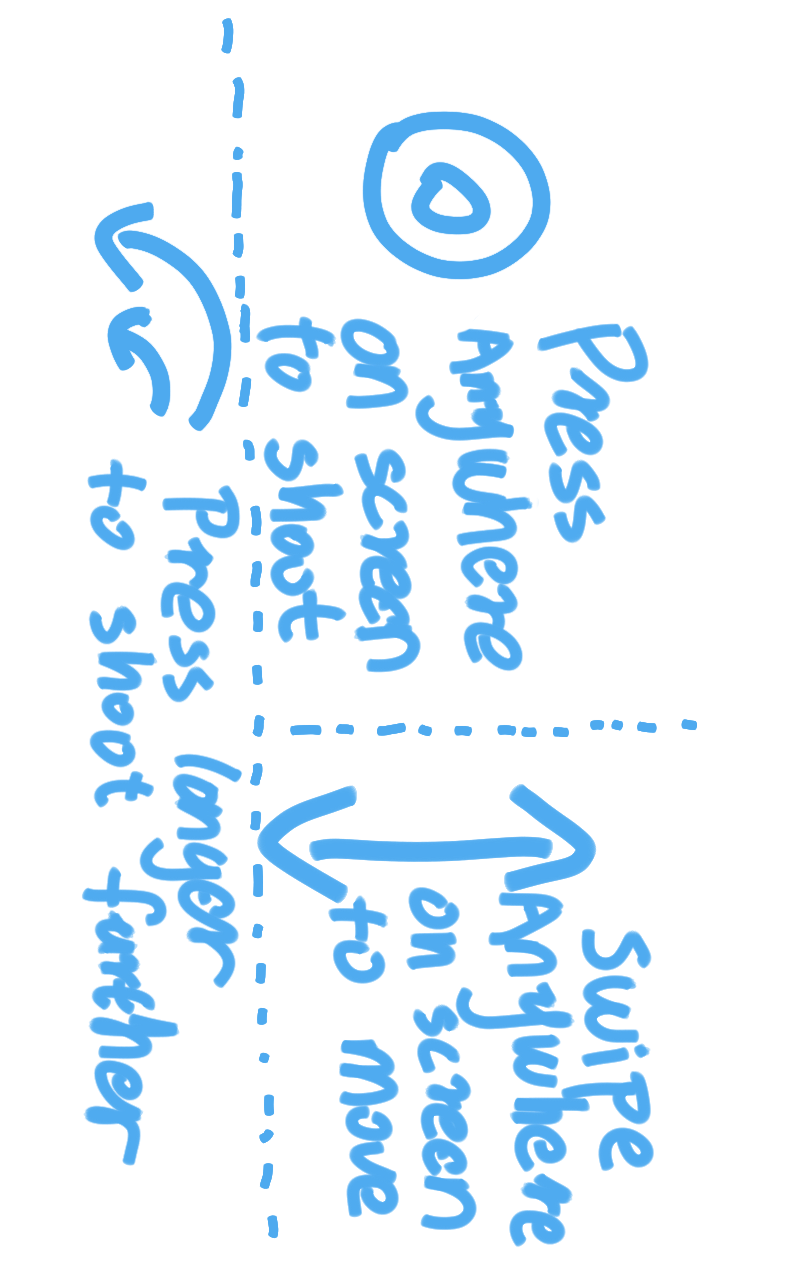 Press
Anywhere
on screen
to shoot
Swipe
Anywhere
on screen
to move
Press longer
to shoot further